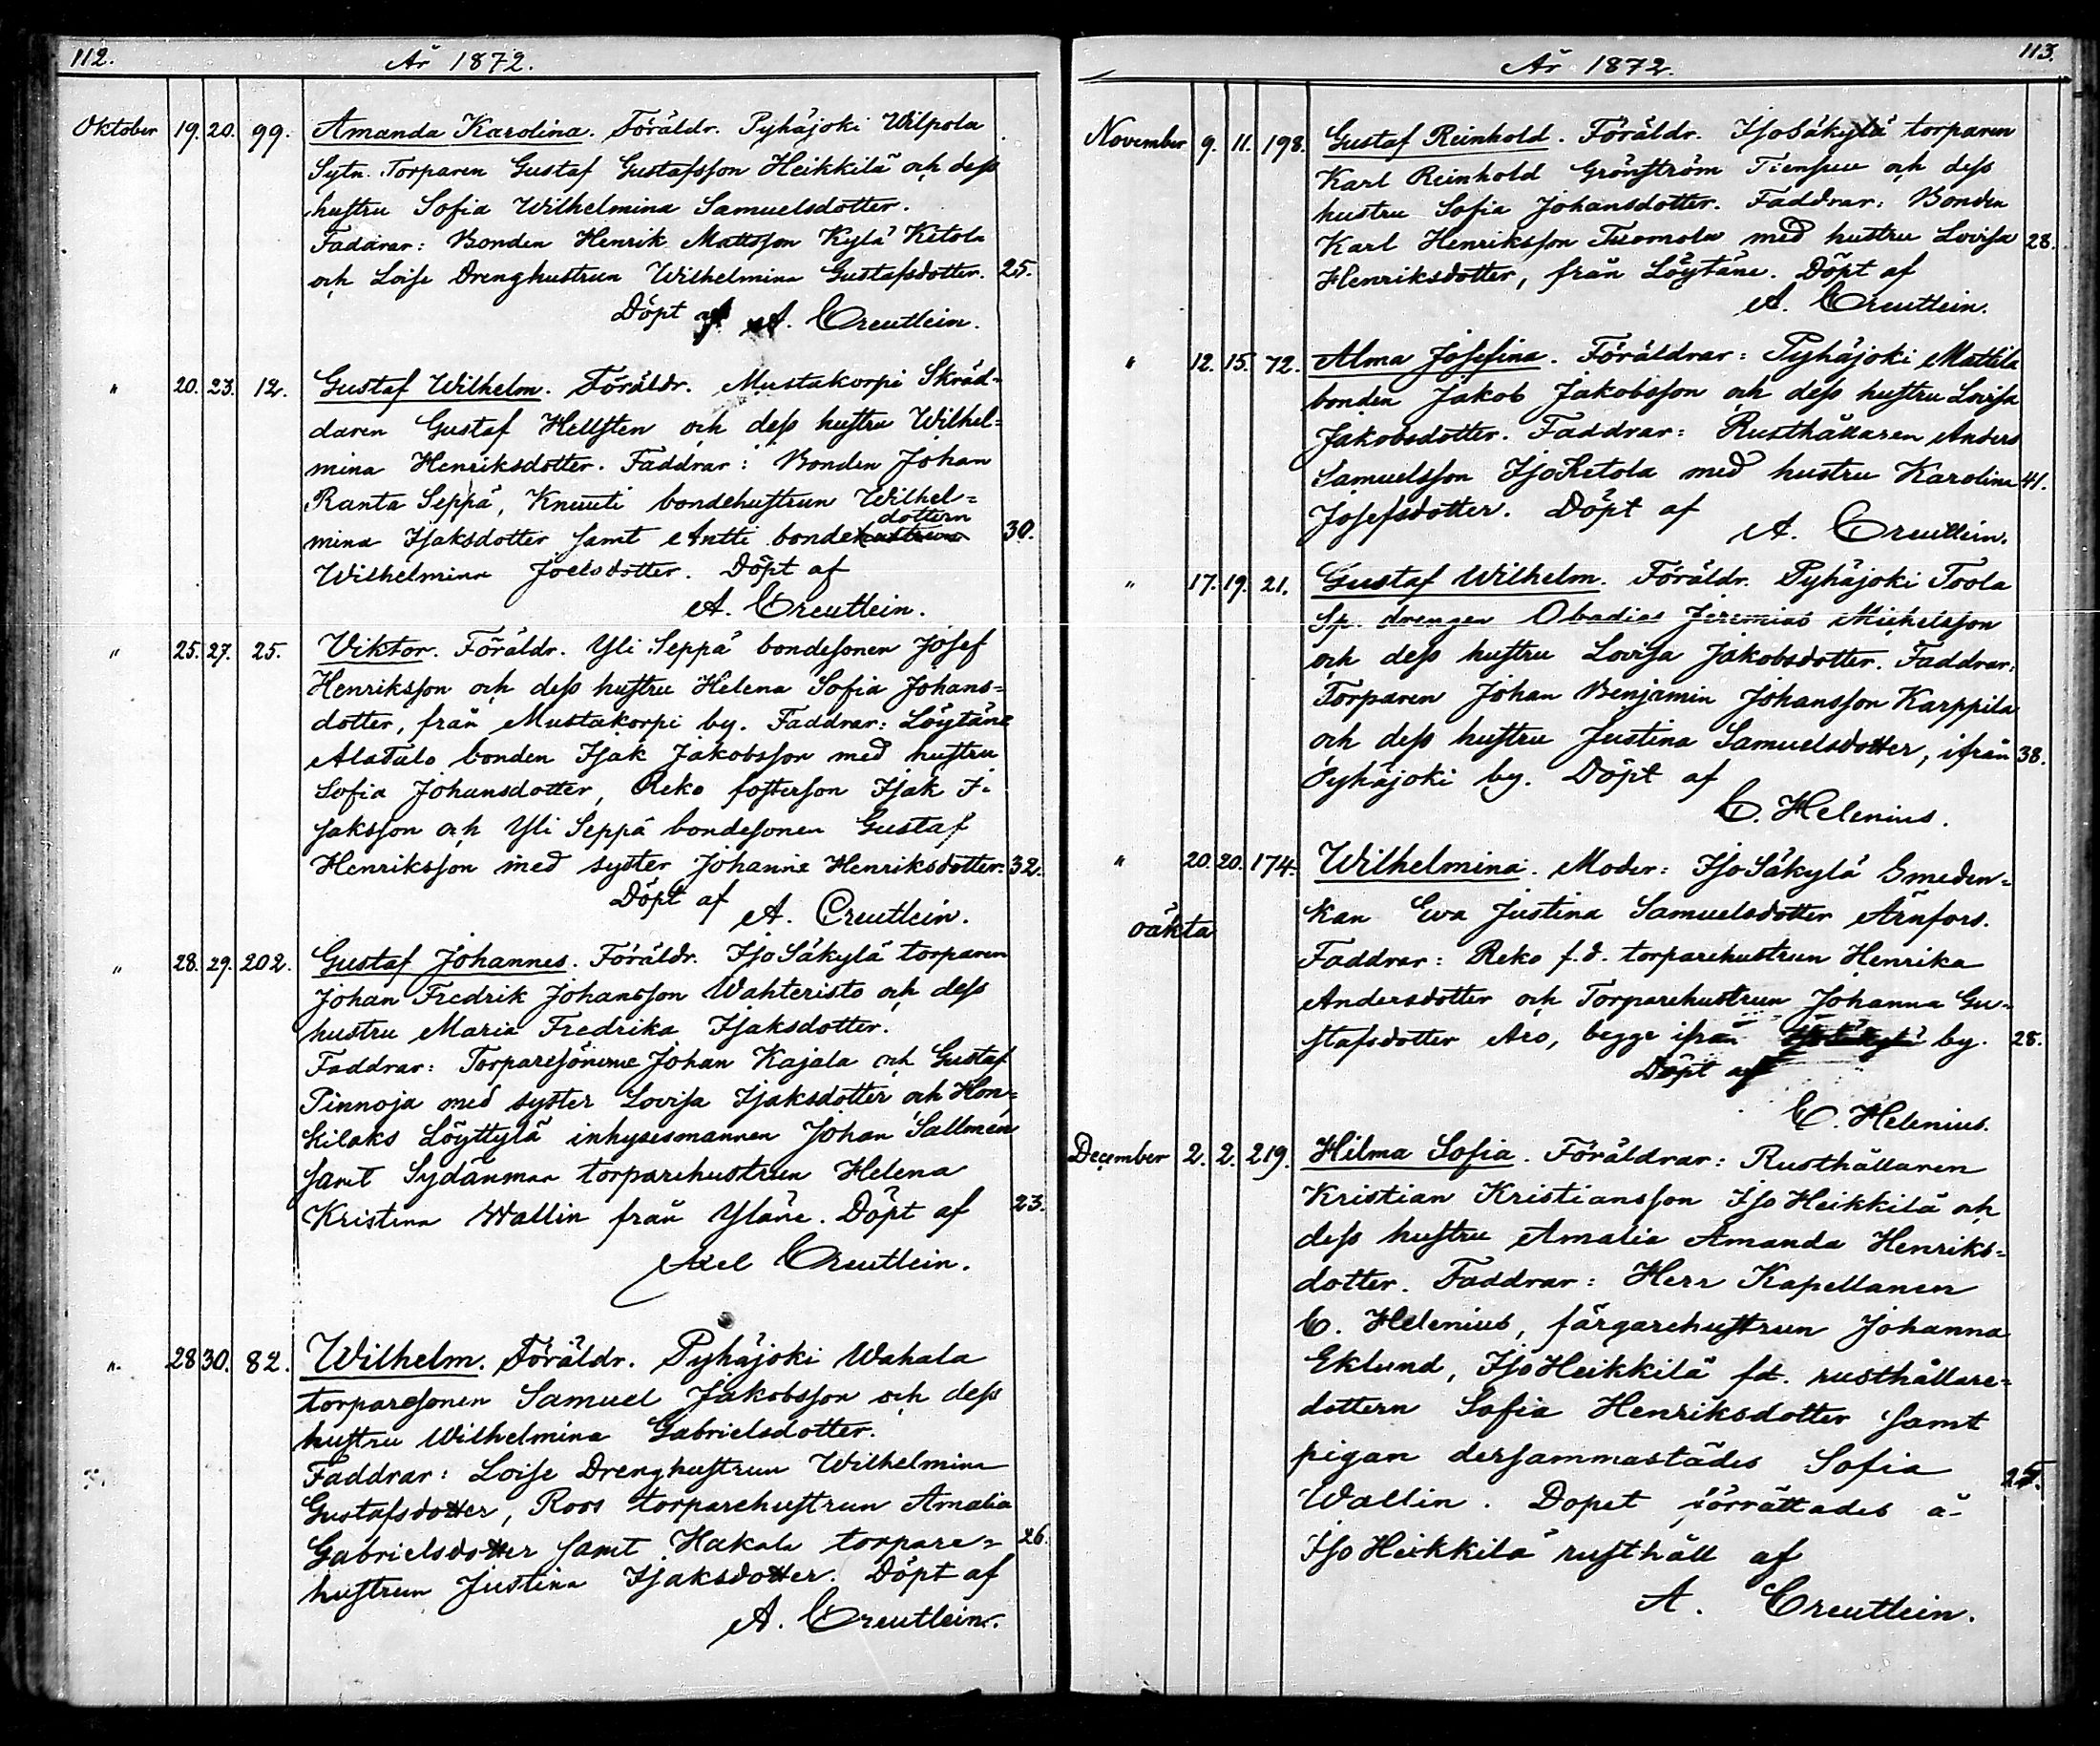 112.
År 1872.
Oktober 19. 20. 99. Amanda Karolina. Föräldr. Pyhäjoki Wilpola
Sytn. Torparen Gustaf Gustafsson Heikkilä och dess
hustru Sofia Wilhelmina Samuelsdotter.
Faddrar: Bonden Henrik Mattsson Kylä Ketola
och Loise Drenghustrun Wilhelmina Gustafsdotter. 25.
Döpt af A. Creutlein.
" 20. 23. 12. Gustaf Wilhelm. Föräldr. Mustakorpi Skräd-
daren Gustaf Hellsten och dess hustru Wilhel-
mina Henriksdotter. Faddrar: Bonden Johan
Ranta Seppä, Knuuti bondehustrun Wilhel-
dottern
mina Isaksdotter samt Antti bondehustrun 30.
Wilhelmina Joelsdotter. Döpt af
A. Creutlein.
" 25. 27. 25. Viktor. Föräldr. Yli Seppä bondesonen Josef
Henriksson och dess hustru Helena Sofia Johans-
dotter, från Mustakorpi by. Faddrar: Löytäne
AlaTalo bonden Isak Jakobsson med hustru
Sofia Johansdotter, Reko fosterson Isak I-
saksson och Yli Seppä bondesonen Gustaf
Henriksson med syster Johanna Henriksdotter. 32.
Döpt af
A. Creutlein.
" 28. 29. 202. Gustaf Johannes. Föräldr. IsoSäkylä torparen
Johan Fredrik Johansson Wahteristo och dess
hustru Maria Fredrika Isaksdotter.
Faddrar: Torparesönerne Johan Kajala och Gustaf
Pinnoja med syster Lovisa Isaksdotter och Hon-
kilaks Löyttylä inhysesmannen Johan Sallmén
samt Sydänmaa torparehustrun Helena
Kristina Wallin från Yläne. Döpt af 23.
Axel Creutlein.
" 28 30. 82. Wilhelm. Föräldr. Pyhäjoki Wahala
torparesonen Samuel Jakobsson och dess
hustru Wilhelmina Gabrielsdotter.
Faddrar: Loise Drenghustrun Wilhelmina
Gustafsdotter, Roos torparehustrun Amalia
Gabrielsdotter samt Hakala torpare- 26.
hustrun Justina Isaksdotter. Döpt af
A. Creutlein.
113.
År 1872.
November 9. 11. 198. Gustaf Reinhold. Föräldr. IsoSäkylä torparen
Karl Reinhold Grönström Tiensuu och dess
hustru Sofia Johansdotter. Faddrar: Bonden
Karl Henriksson Tuomola med hustru Lovisa 28.
Henriksdotter, från Löytäne. Döpt af
A. Creutlein.
" 12. 15. 72. Alma Josefina. Föräldrar: Pyhäjoki Mattila
bonden Jakob Jakobsson och dess hustru Lovisa
Jakobsdotter. Faddrar: Rusthållaren Anders
Samuelsson IsoKetola med hustru Karolina 41.
Josefsdotter. Döpt af
A. Creutlein.
" 17. 19. 21. Gustaf Wilhelm. Föräldr. Pyhäjoki Toola
Sp. drengen Obadias Jeremias Michelsson
och dess hustru Lovisa Jakobsdotter. Faddrar:
Torparen Johan Benjamin Johansson Karppila
och dess hustru Justina Samuelsdotter, ifrån 38.
Pyhäjoki by. Döpt af
C. Helenius.
" 20. 20. 174. Wilhelmina. Moder: IsoSäkylä Smeden-
oäkta kan Eva Justina Samuelsdotter Ärnfors.
Faddrar: Reko f.d. torparehustrun Henrika
Andersdotter och Torparehustrun Johanna Gu-
stafsdotter Aro, begge ifrån by. 28.
Döpt af
C. Helenius.
December 2. 2. 219. Hilma Sofia. Föräldrar: Rusthållaren
Kristian Kristiansson Iso Heikkilä och
dess hustru Amalia Amanda Henriks-
dotter. Faddrar: Herr Kapellanen
C. Helenius, färgarehustrun Johanna
Eklund, IsoHeikkilä fd. rusthållare-
dottern Sofia Henriksdotter samt
pigan dersammastädes Sofia
Wallin. Dopet förrättades å
Iso Heikkilä rusthåll af
A. Creutlein.